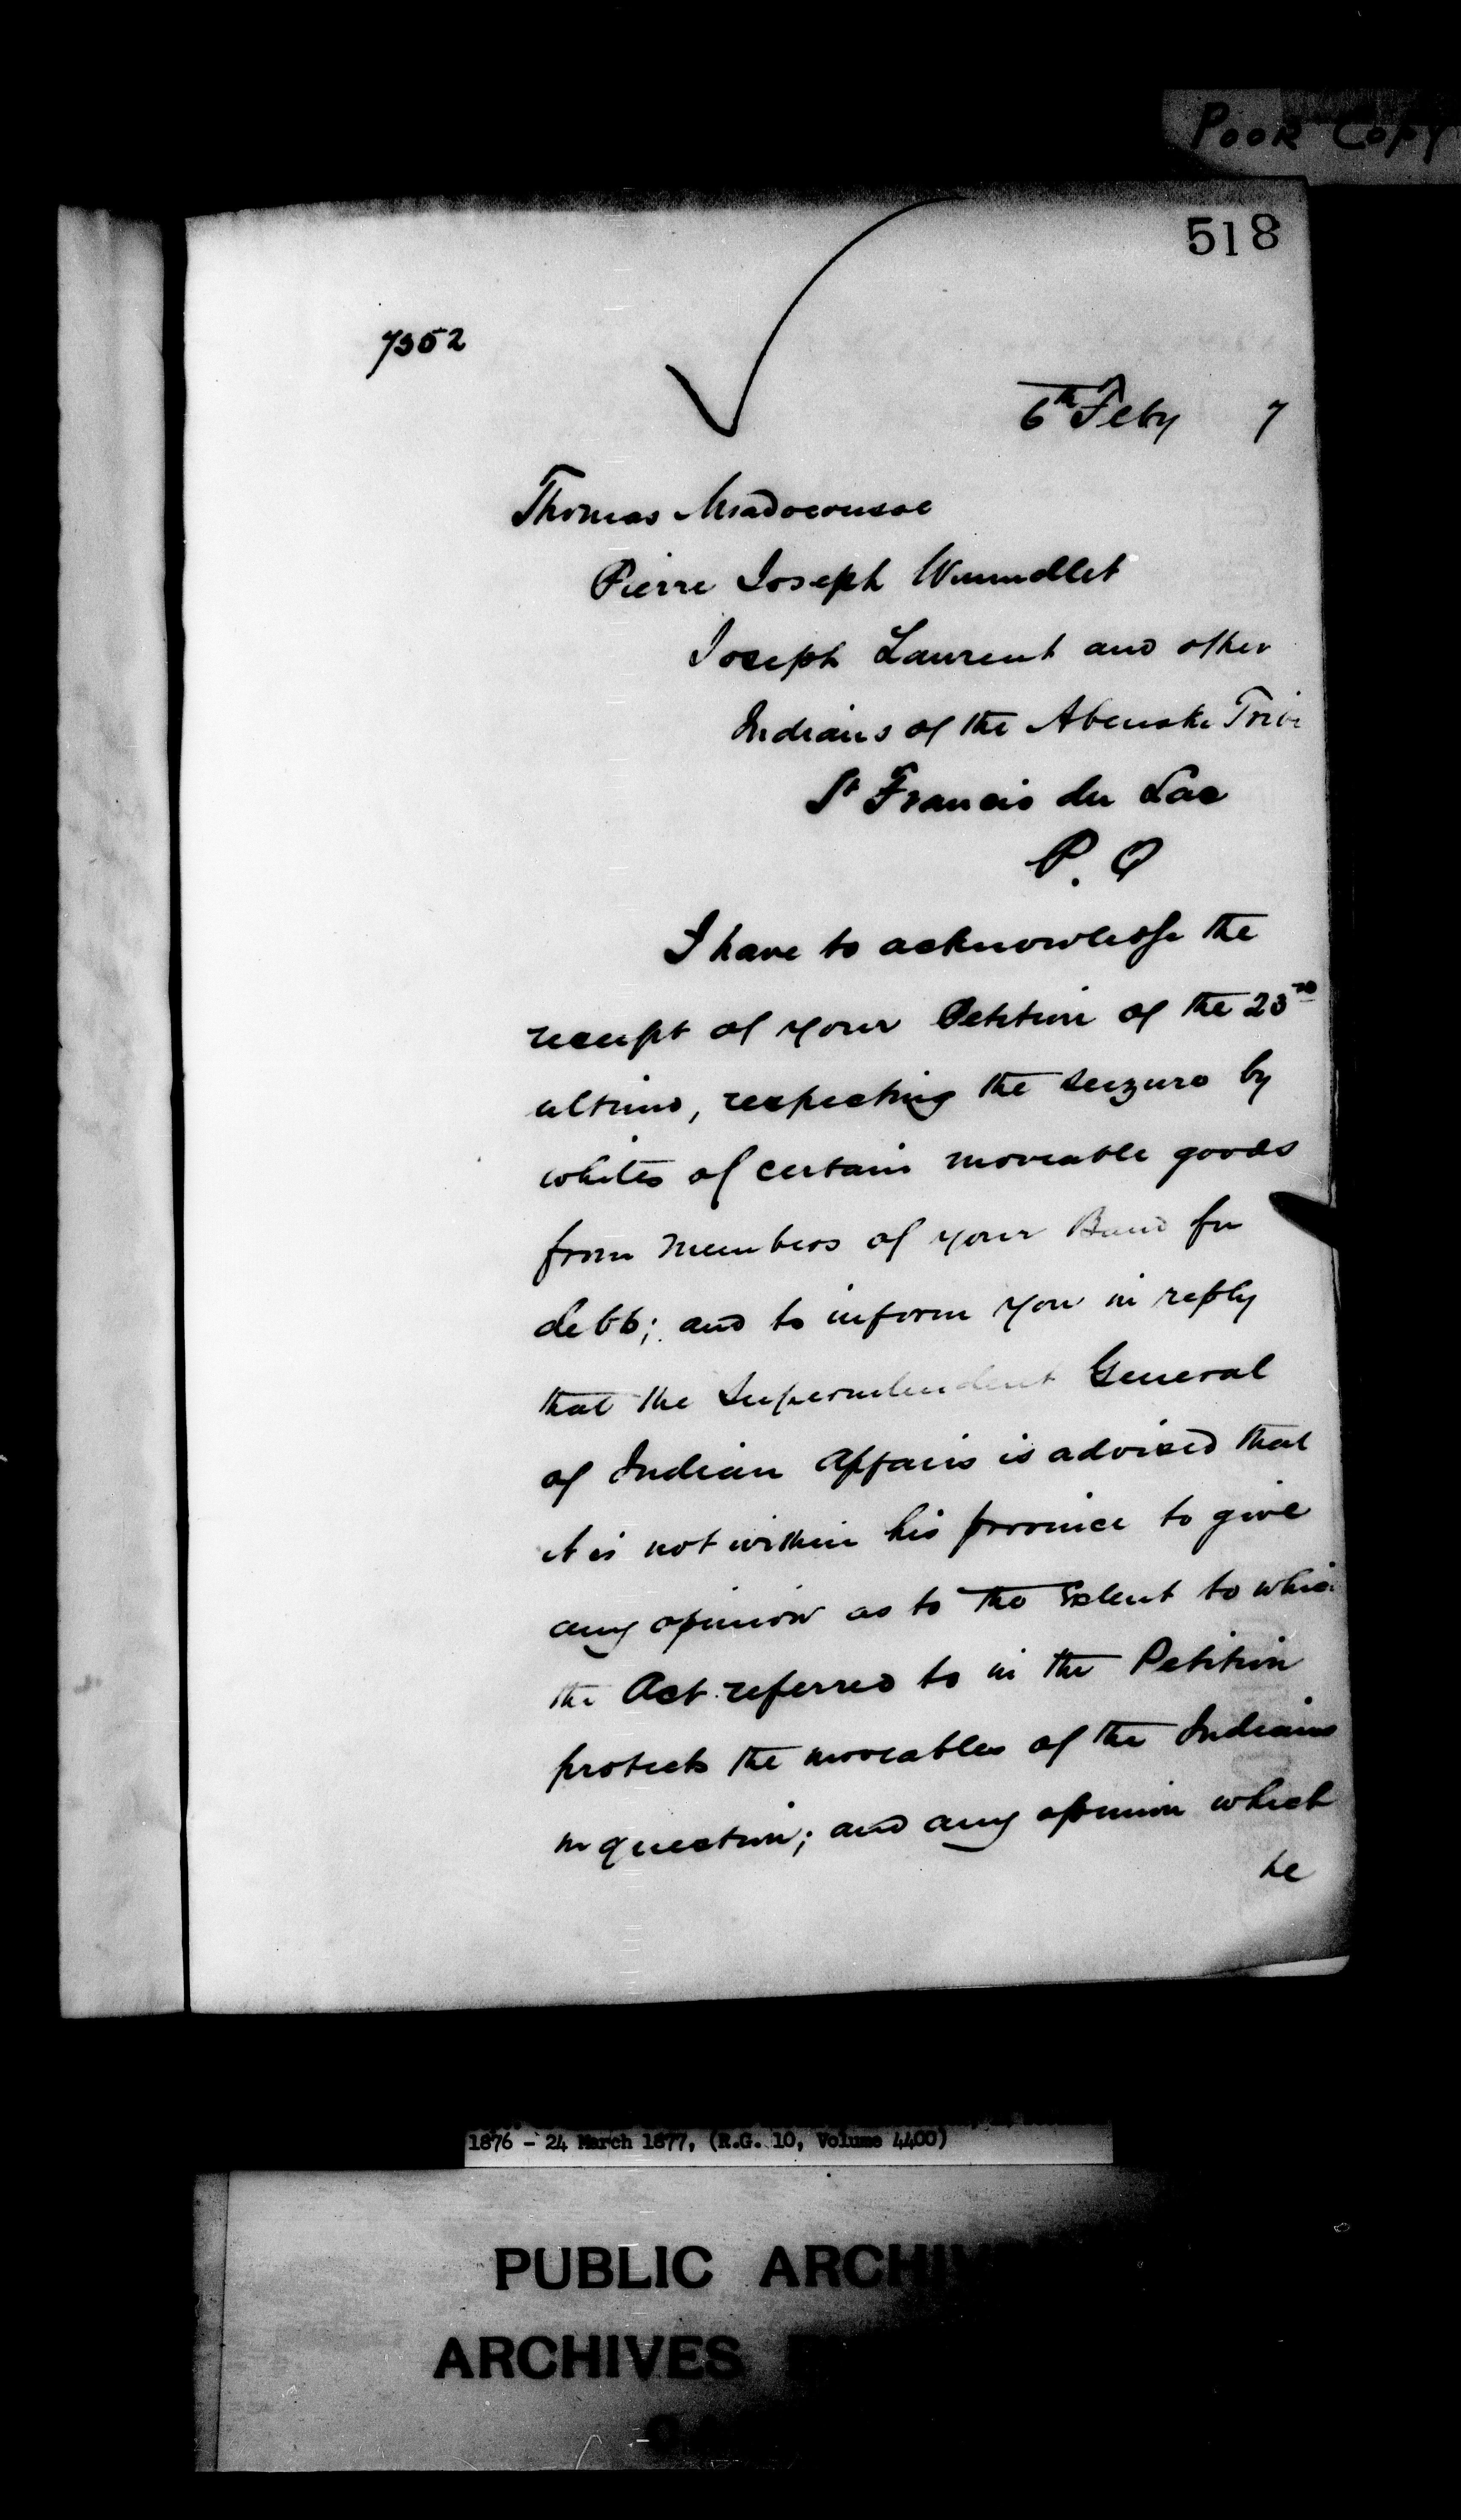 POOR COPY
518
7352
6th Feby 7
Thomas
Pierre Joseph
Joseph Laurent and other
Indians of the Abenake Tribe
St Francis du Lac
P. Q
I have to acknowledge the
receipt of your Petition of the 23rd
ultimo, respecting the seizure by
whites of certain moveable goods
from members of your Band for
debt; and to inform you in reply
that the Superintendent General
of Indian Affairs is advised that
it is not within his province to give
any opinion as to the extent to which
the Act referred to in the Petition
protects the moveables of the Indians
in question; and any opinion which
he
1876 - 24 March 1877, (R.G. 10, Volume 4400)
PUBLIC ARCHIV
ARCHIVES